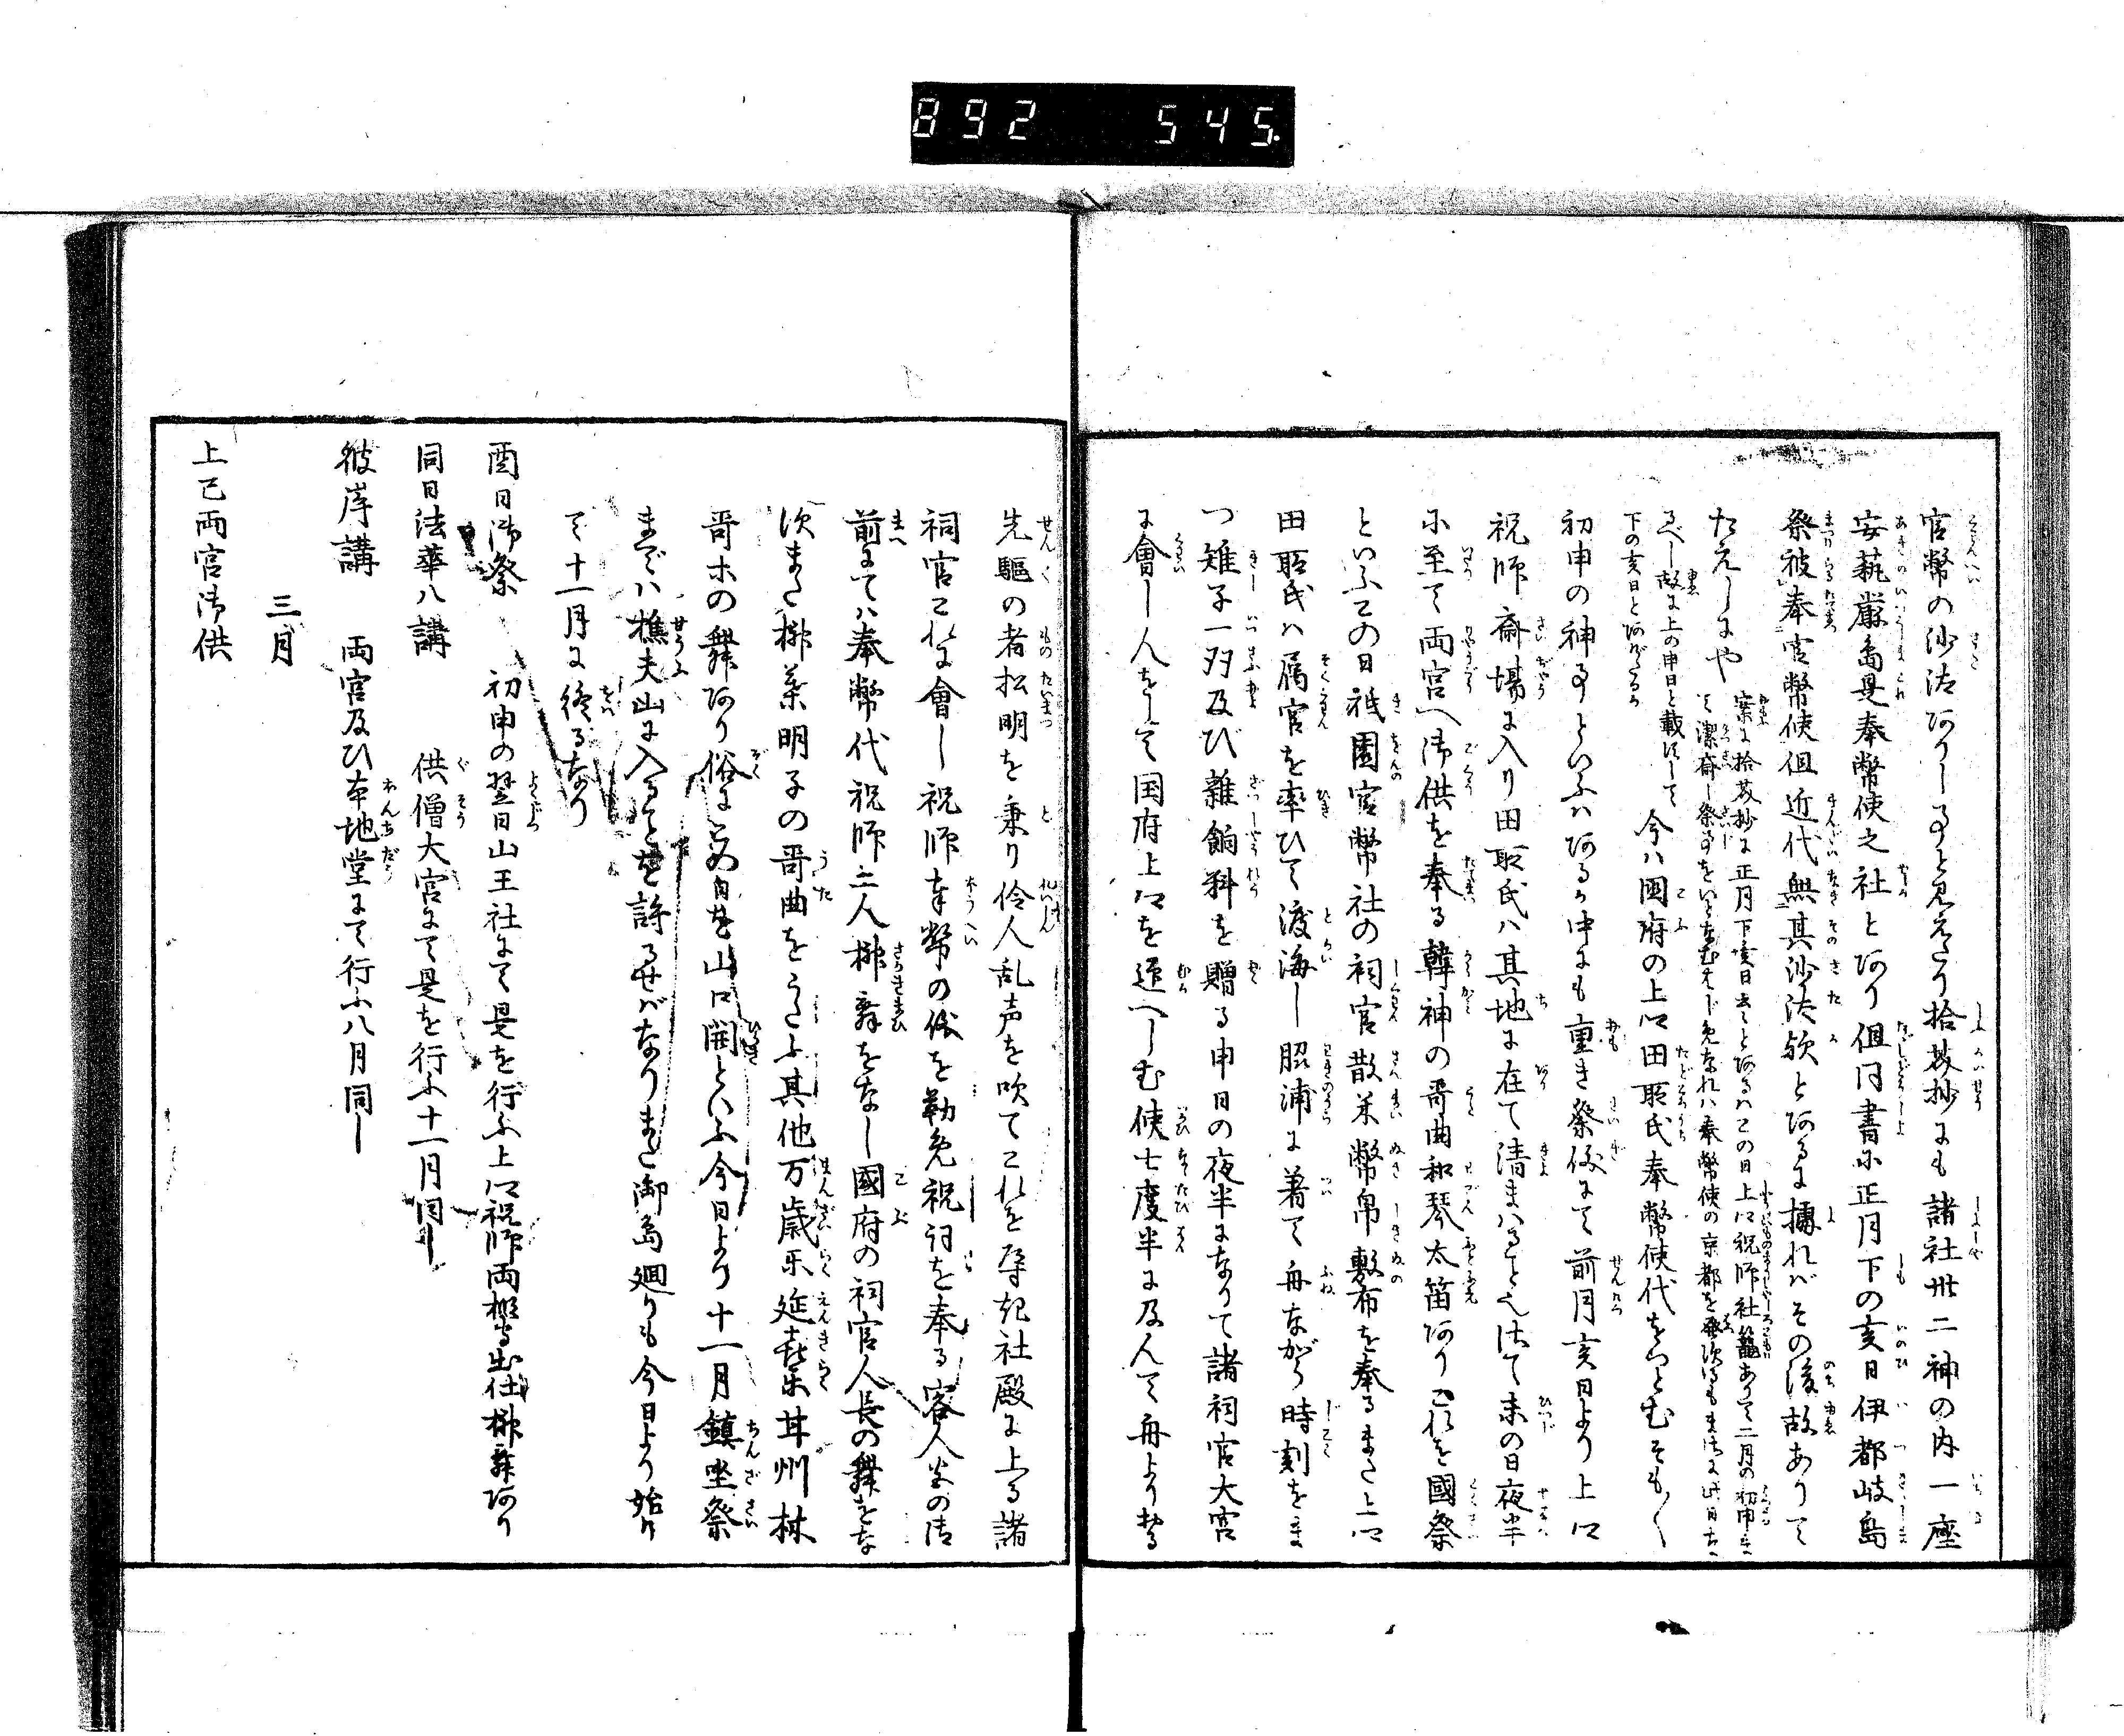 892 545.
官幣の沙汰ありし事と見えたり拾芥抄にも諸社卅二神の内一座
安藝嚴島是奉幣使之社とあり但同書に正月下の亥日伊都岐島
祭被奉官幣使但近代無其沙汰歟とあるに據ればその後故ありて
たえしにや
案に拾芥抄に正月下亥日云々とあるはこの日上卿祝師社籠ありて二月の初申まて
潔斎し祭事を
奉幣使の京都を発
べし故に上の申日と載ずして
下の亥日とあげたるか
今は国府の上卿田所氏奉幣使代をつとむそも〳〵
初申の神事といふはあるが中にも重き祭儀にて前月亥日より上卿
祝師斎場に入り田所氏は其地に在て清まはること也かくて未の日夜半
に至て両宮へ御供を奉る韓神の哥曲和琴太笛ありこれを國祭
といふこの日祇園官幣社の祠官散米幣帛敷布を奉るまた上卿
田所氏は属官を率ひて渡海し胎浦に着て舟ながら時刻をま
つ雉子一双及び雑餉料を贈る申日の夜半になりて諸祠官大宮
に會し人をして国府上卿を迎へしむ使七度半に及んで舟より登る
先驅の者松明を秉り伶人乱声を吹てこれを導き社殿に上る諸
祠官これに會し祝師奉幣の儀を勤め祝詞を奉る客人宮の御
前にては奉幣代祝師二人榊舞をなし國府の祠官人長の舞をな
次また榊葉明子の哥曲をうたふ其他万歳楽延喜楽甘州林
哥等の舞あり俗にこの日を山口開といふ今日より十一月鎮坐祭
までは樵夫山に入ることを許るせばなりまた御島廻りも今日より始り
て十一月に終るなり
酉日御祭　初申の翌日山王社にて是を行ふ上卿祝師両棚守出仕榊舞あり
同日法華八講　供僧大宮にて是を行ふ十一月同し
彼岸講　両宮及ひ本地堂にて行ふ八月同し
三月
上巳両宮御供